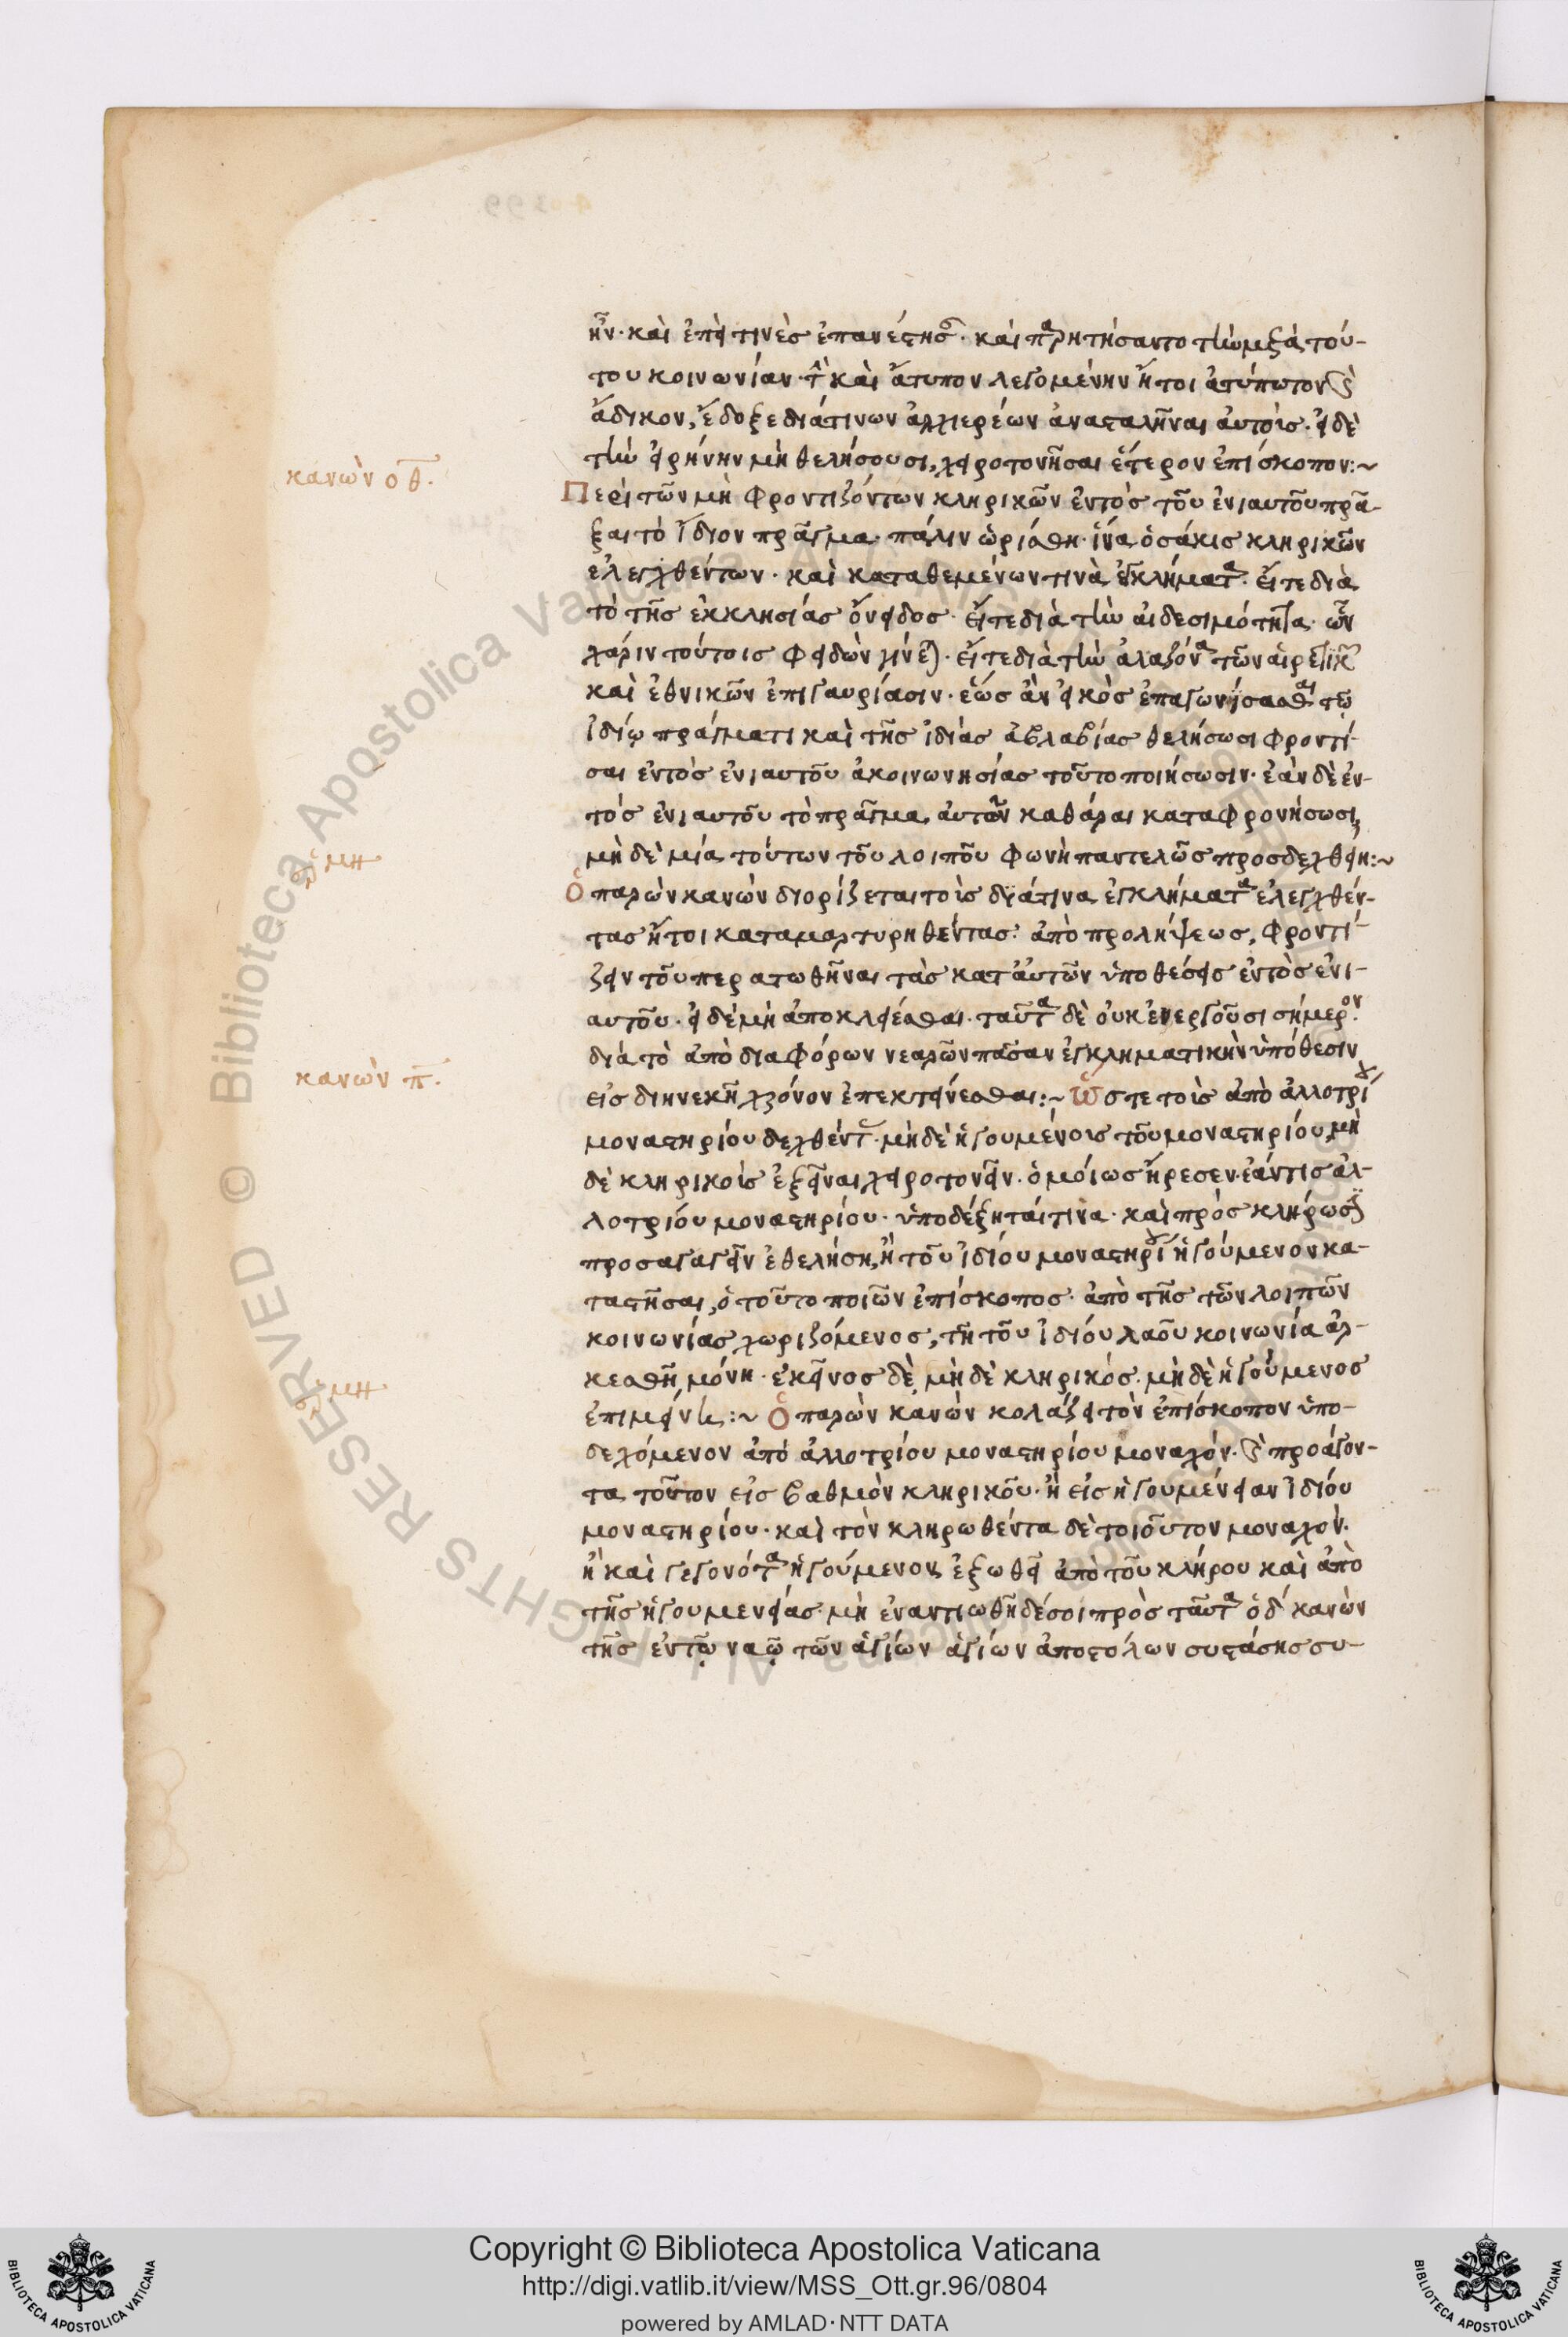 ἦν· καὶ ἐπεὶ τινὲς ἐπανέστησαν· καὶ παρητήσαντο τὴν μετὰ τού-
του κοινωνίαν· καὶ ἄτυπον λεγομένην ἤτοι ἀτύπωτον καὶ
ἄδικον, ἔδοξε διά τινων ἀρχιερέων ἀνασταλῆναι αὐτοῖς· εἰ δὲ
τὴν εἰρήνην μὴ θελήσουσι, χειροτονῆσαι ἕτερον ἐπίσκοπον:~
κανὼν οθ.
Περὶ τῶν μὴ φροντιζόντων κληρικῶν ἐντὸς τοῦ ἐνιαυτοῦ πρᾶ-
ξαι τὸ ἴδιον πρᾶγμα· πάλιν ὡρίσθη· ἵνα ὁσάκις κληρικῶν
ἐλεγχθέντων· καὶ καταθεμένων τινὰ ἐγκλήματα· εἴτε διὰ
τὸ τῆς ἐκκλησίας ὄνειδος· εἴτε διὰ τὴν αἰδεσιμότητα· ὧν
χάριν τούτοις φειδὼν γίνεται· εἴτε διὰ τὴν ἀλαζόνα τῶν αἱρετικῶν
καὶ ἐθνικῶν ἐπιγαυρίασιν· ἕως ἂν εἰκὸς ἐπαγωνίσασθαι τῷ
ἰδίῳ πράγματι καὶ τῆς ἰδίας ἀβλαβίας θελήσωσι φροντί-
σαι ἐντὸς ἐνιαυτοῦ ἀκοινωνησίας τοῦτο ποιήσωσιν· ἐὰν δὲ ἐν-
τὸς ἐνιαυτοῦ τὸ πρᾶγμα αὐτῶν καθάραι καταφρονήσωσι,
μὴ δὲ μία τούτων τοῦ λοιποῦ φωνὴ παντελῶς προσδεχθείη:~
ἑρμη
Ὁ παρὼν κανὼν διορίζεται τοὺς διά τινα ἐγκλήματα ἐλεγχθέν-
τας ἤτοι καταμαρτυρηθέντας· ἀπὸ προλήψεως, φροντί-
ζειν τοῦ περατωθῆναι τὰς κατ' αὐτῶν ὑποθέσεις ἐντὸς ἐνι-
αυτοῦ· εἰ δὲ μὴ ἀποκλείεσθαι· ταῦτα δὲ οὐκ ἐνεργοῦσι σήμερον·
διὰ τὸ ἀπὸ διαφόρων νεαρῶν πᾶσαν ἐγκληματικὴν ὑπόθεσιν
κανὼν π.
εἰς διηνεκῆ χρόνον ἐπεκτείνεσθαι:~ Ὥστε τοῖς ἀπὸ ἀλλοτρίου
μοναστηρίου δεχθέντας· μὴ δὲ ἡγουμένοις τοῦ μοναστηρίου, μὴ
δὲ κληρικοῖς ἐξεῖναι χειροτονεῖν· ὁμοίως ἤρεσεν· ἐάν τις ἀλ-
λοτρίου μοναστηρίου· ὑποδέξηταί τινα· καὶ πρὸς κλήρωσιν
προσαγαγεῖν ἐθελήσῃ, ἢ τοῦ ἰδίου μοναστηρίου ἡγούμενον κα-
ταστῆσαι, ὁ τοῦτο ποιῶν ἐπίσκοπος· ἀπὸ τῆς τῶν λοιπῶν
κοινωνίας χωριζόμενος, τῇ τοῦ ἰδίου λαοῦ κοινωνίᾳ ἀρ-
κεσθῇ μόνῃ· ἐκεῖνος δὲ μὴ δὲ κληρικός· μὴ δὲ ἡγούμενος
ἑρμη
ἐπιμείνῃ:~ Ὁ παρὼν κανὼν κολάζει τὸν ἐπίσκοπον ὑπο-
δεχόμενον ἀπὸ ἀλλοτρίου μοναστηρίου μοναχόν· καὶ προάγον-
τα τοῦτον εἰς βαθμὸν κληρικοῦ· ἢ εἰς ἡγουμένειαν ἰδίου
μοναστηρίου· καὶ τὸν κληρωθέντα δὲ τοιοῦτον μοναχόν·
ἢ καὶ γεγονότα ἡγούμενον ἐξωθεῖ ἀπὸ τοῦ κλήρου καὶ ἀπὸ
τῆς ἡγουμενείας· μὴ ἐναντιωθῇ δέ σοι πρὸς ταῦτα ὁ δ κανὼν
τῆς ἐν τῷ ναῷ τῶν ἁγίων ἁγίων ἀποστόλων συστάσης συ-
Copyright © Biblioteca Apostolica Vaticana
http://digi.vatlib.it/view/MSS_Ott.gr.96/0804
powered by AMLAD·NTT DATA
BIBLIOTECA APOSTOLICA VATICANA
BIBLIOTECA APOSTOLICA VATICANA
© Biblioteca Apostolica Vaticana
ALL RIGHTS RESERVED